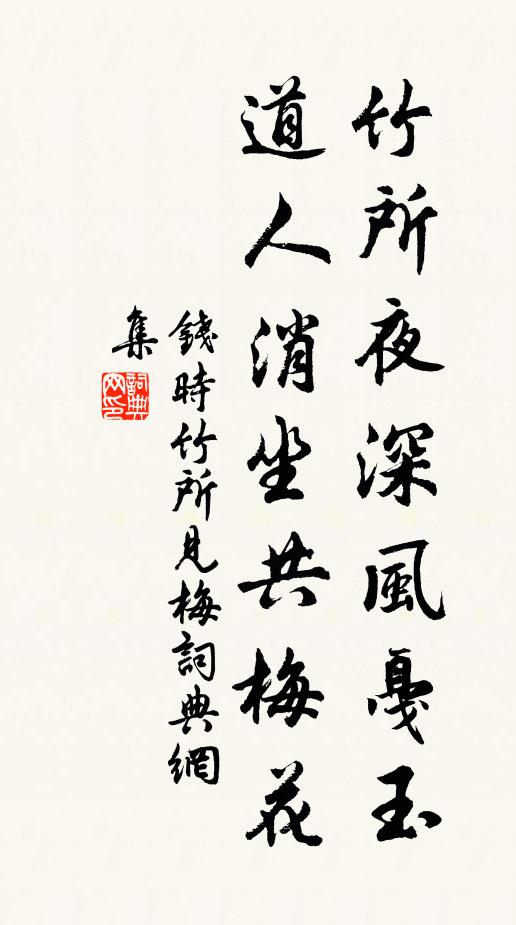 竹所夜深風戛玉
道人消坐共梅花
錢時竹所見梅詞典網
集
詞典
网印